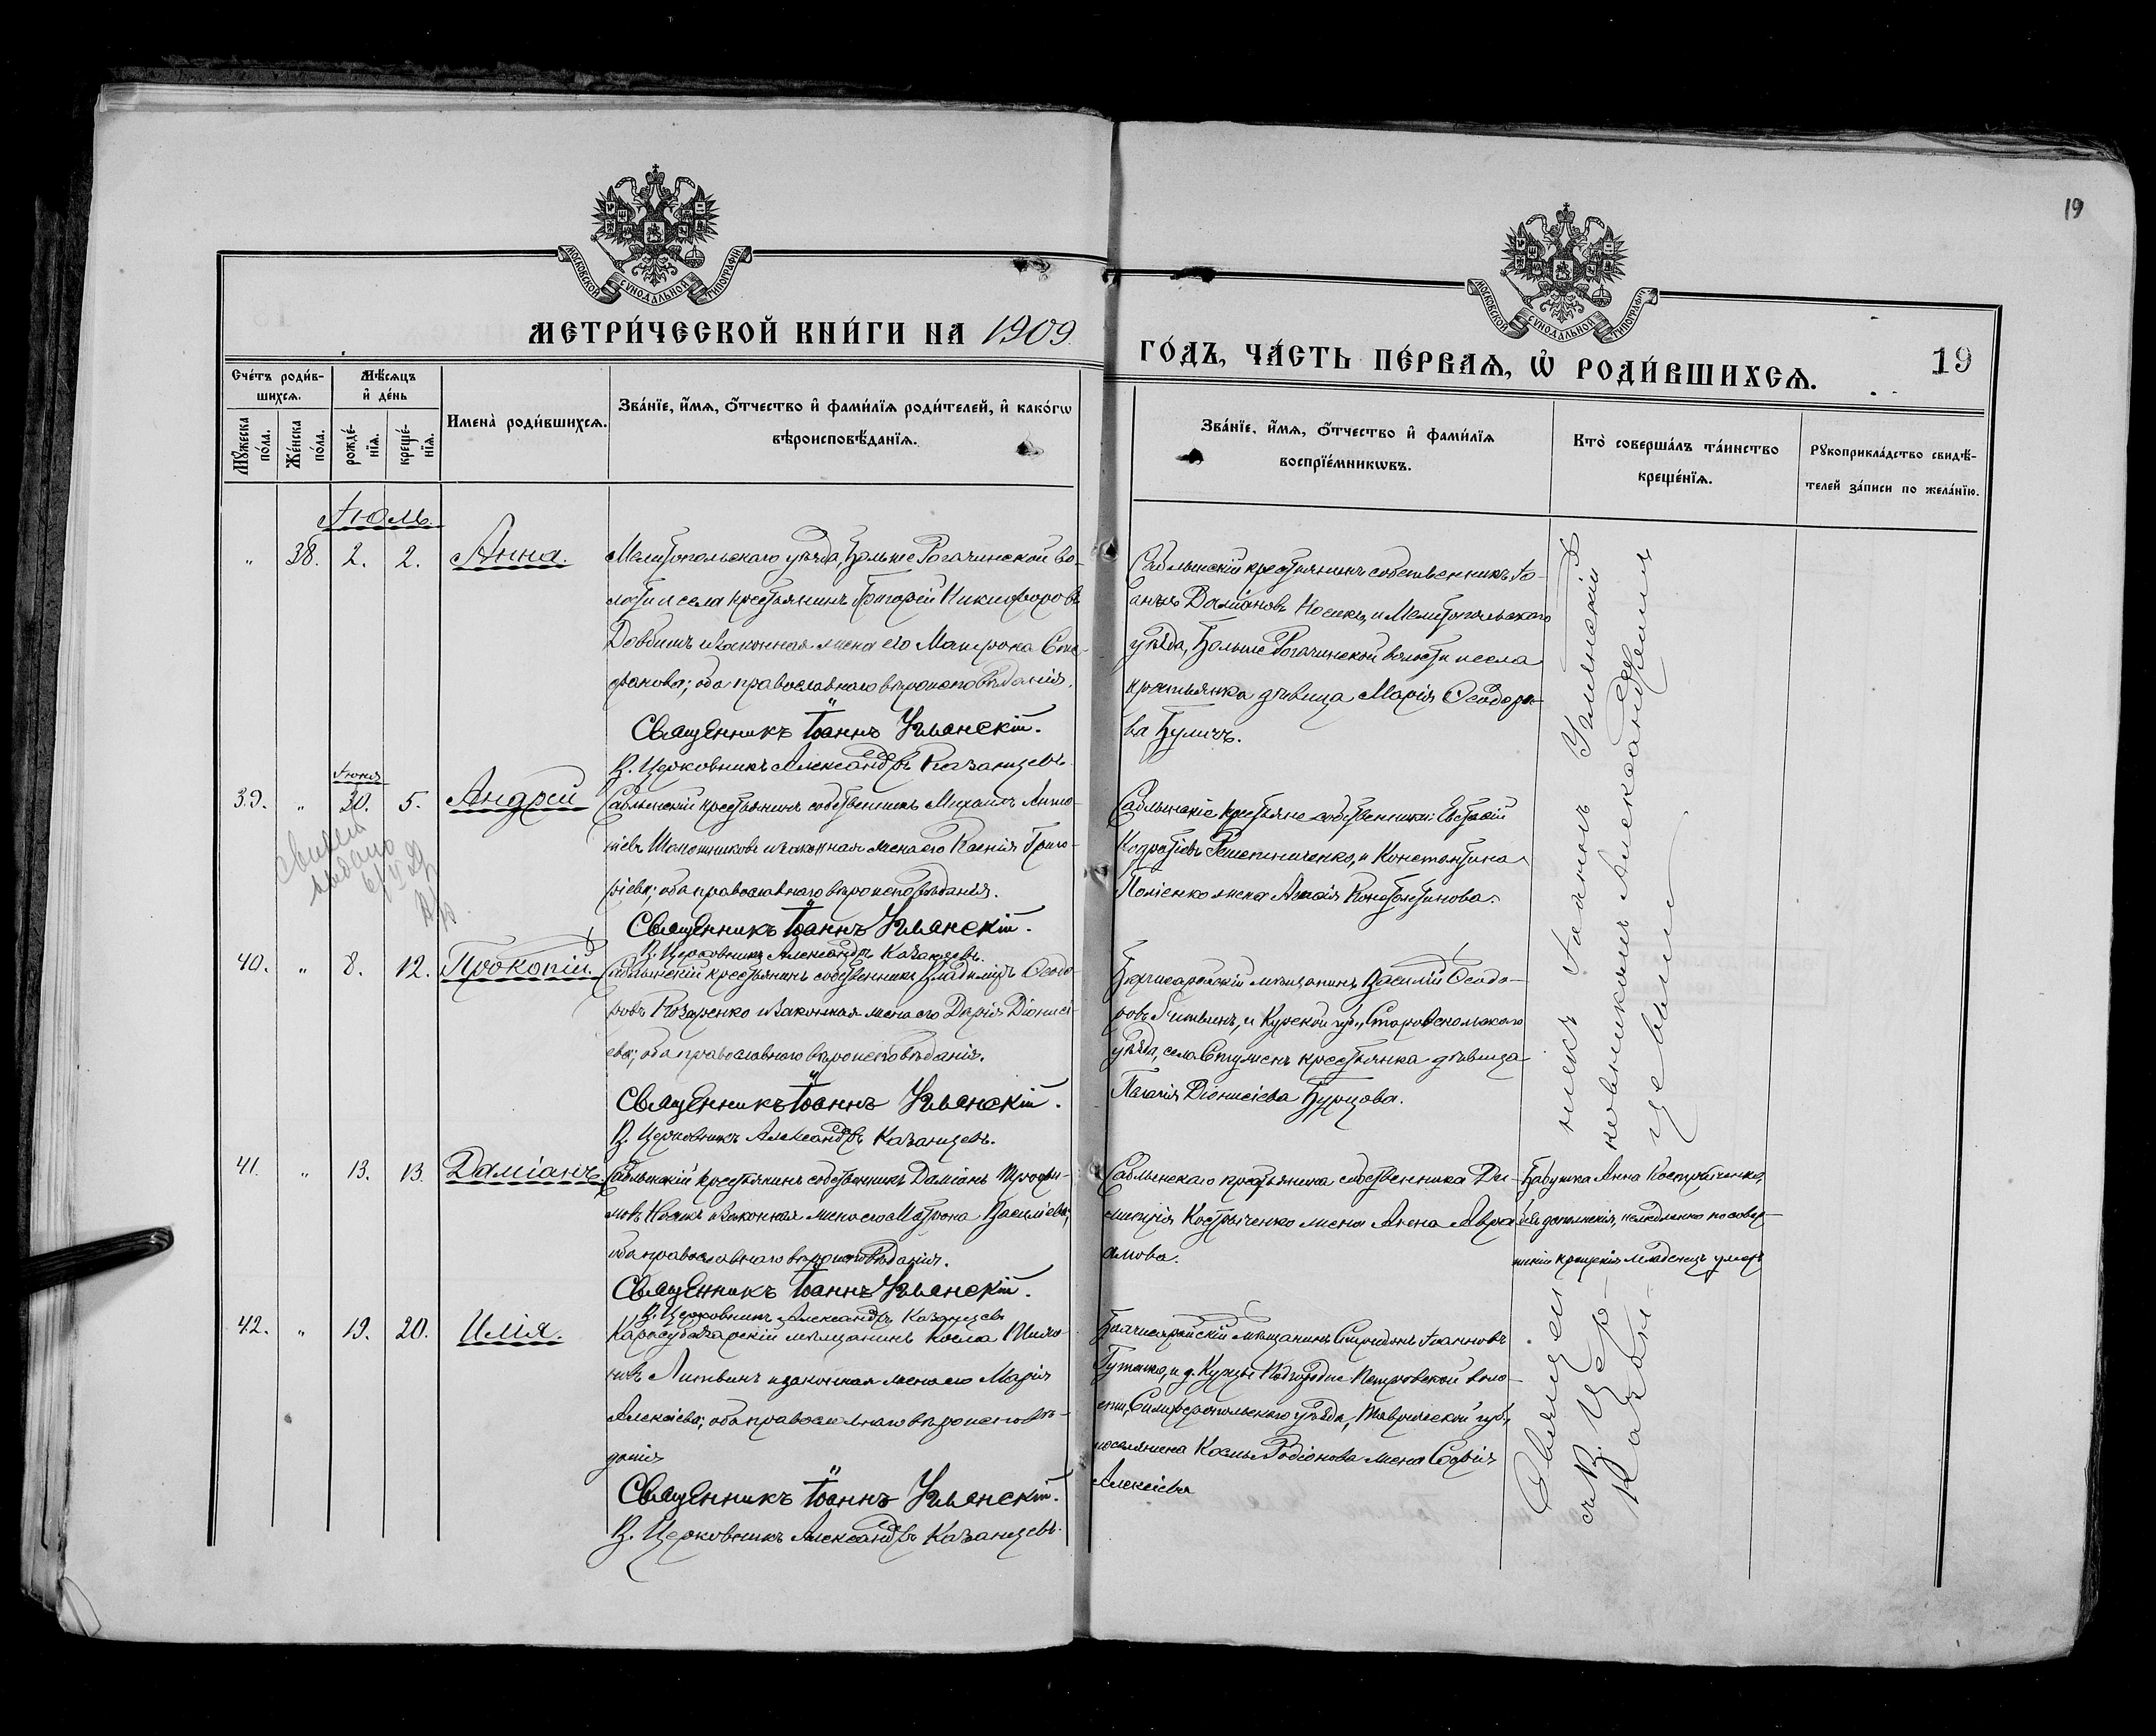 19
МОСКОВСКОЙ СУНОДАЛЬНОЙ ТИПОГРАФІИ
МОСКОВСКОЙ СУНОДАЛЬНОЙ ТИПОГРАФІИ
МЕТРИ́ЧЕСКОЙ КНИ́ГИ НА 1909
ГО́ДЪ, ЧА́СТЬ ПЕ́РВАѦ, Ѡ҆ РОДИ́ВШИХСѦ.
19
Сче́тъ роди́в-
шихсѧ.
Мѣ́сѧцъ
и҆ де́нь
Имена̀ роди́вшихсѧ.
Зва́нїе, и҆́мѧ, ѻ҆́тчество и҆ фами́лїѧ роди́телей, и҆ како́гѡ
вѣроисповѣ́данїѧ.
Мꙋ́жеска
по́ла.
Же́нска
по́ла.
рожде́-
нїѧ.
креще́-
нїѧ.
Зва́нїе, и҆́мѧ, ѻ҆́тчество и҆ фами́лїѧ
воспрїе́мникѡвъ.
Кто̀ соверша́лъ та́инство
креще́нїѧ.
Рꙋкоприкла́дство свидѣ́-
телей за́писи по жела́нїю.
Іюль.
" 38. 2. 2. Анна.
Мелитопольскаго уѣзда, Больше Рогачинской во-
лости и села крестьянинъ Григорій Никифоровъ
Довбишъ и законная жена его Матрона Сте-
фанова; оба православнаго вѣроисповѣданія.
Священникъ Іоаннъ Уманскій.
В. Церковникъ Александръ Казанцевъ.
Саблынскій крестьянинъ собственникъ Іо-
аннъ Даміановъ Носикъ, и Мелитопольскаго
уѣзда, Больше Рогачинской волости и села
крестьянка дѣвица Марія Ѳеодоро-
ва Буличъ.
Іюня
39. " 30. 5. Андрей
Саблынскій крестьянинъ собственникъ Михаилъ Анто-
ніевъ Шапошниковъ и законная жена его Ксенія Григо-
ріева; оба православнаго вѣроисповѣданія.
Священникъ Іоаннъ Уманскій.
В. Церковникъ Александръ Казанцевъ.
Саблынскіе крестьяне собственники: Евстафій
Решетниченко, и Константина
жена Константинова.
40. " 8. 12. Прокопій.
Саблынскій крестьянинъ собственникъ Владиміръ Ѳеодо-
ровъ Назаренко и законная жена его Дарія Діонисі-
ева; оба православнаго вѣроисповѣданія.
Священникъ Іоаннъ Уманскій.
В. Церковникъ Александръ Казанцевъ.
мѣщанинъ Василій Ѳеодо-
ровъ Литвинъ, и Курской губ., Старооскольскаго
уѣзда, села крестьянка дѣвица
Діонисіева Бурцова.
41. " 13. 13. Даміанъ.
Саблынскій крестьянинъ собственникъ Даміанъ Трофи-
мовъ Носикъ и законная жена его Матрона Василіева;
оба православнаго вѣроисповѣданія.
Священникъ Іоаннъ Уманскій.
В. Церковникъ Александръ Казанцевъ
Саблынскаго крестьянина собственника Ди-
митрія Костриченко жена Анна Авра-
амова.
Бабушка Анна Костриченко,
безъ дополненія, немедленно по совер-
шеніи крещенія младенецъ умеръ
42. " 19. 20. Илія.
Карасубазарскій мѣщанинъ Косма
Литвинъ и законная жена его Марія
Алексіева; оба православнаго вѣроисповѣ-
данія
Священникъ Іоаннъ Уманскій.
В. Церковникъ Александръ Казанцевъ.
Бахчисарайскій мѣщанинъ Спиридонъ Іоанновъ
и д. Курцы Подгородне Петровской воло-
сти, Симферопольскаго уѣзда, Таврической губ.,
поселянина Космы Родіонова жена Софія
Алексіева
Священникъ Іоаннъ Уманскій
съ В. Церковникомъ Александромъ
Казанцевымъ